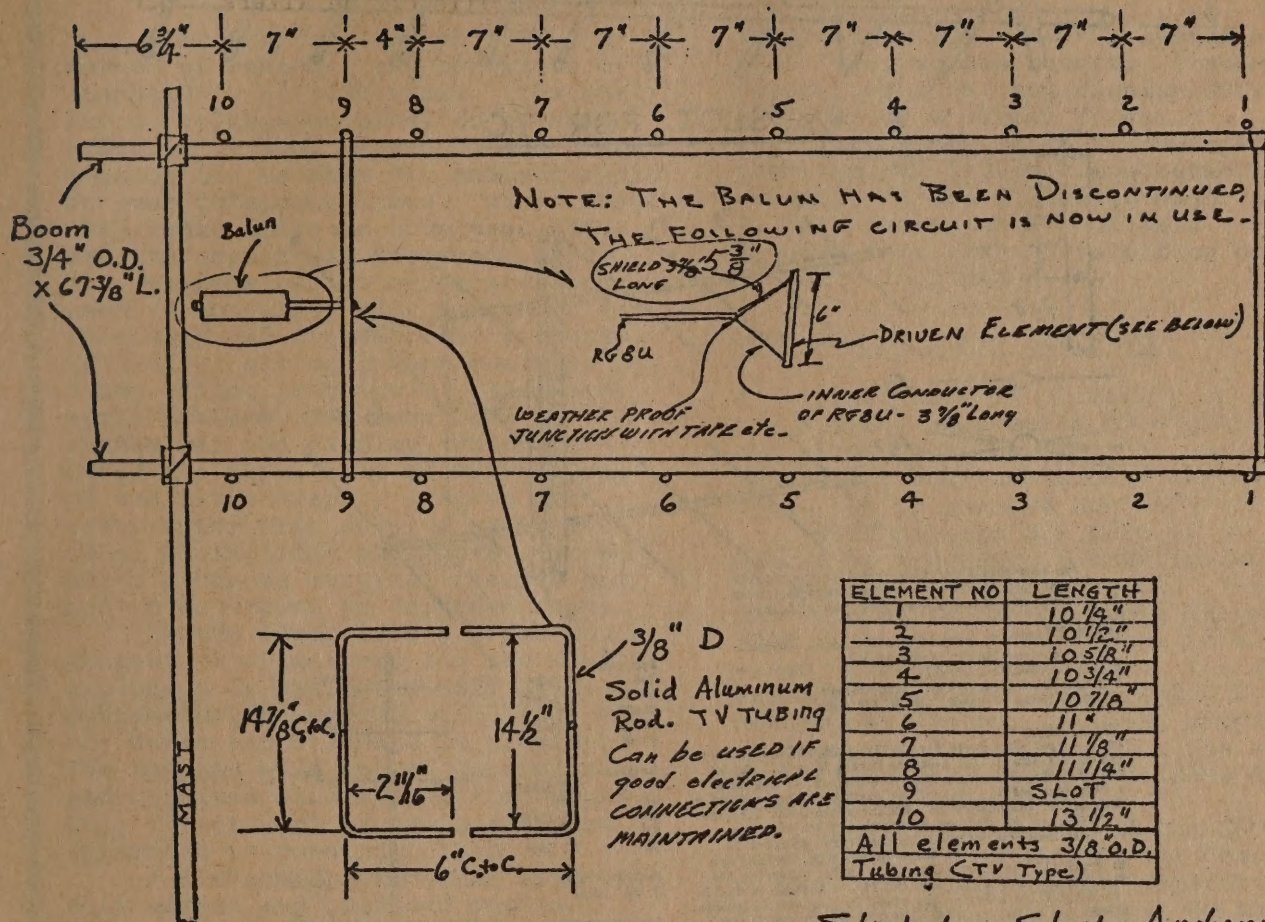 6 3/4" 7" 4" 7" 7" 7" 7" 7" 7" 7"
10 9 8 7 6 5 4 3 2 1
NOTE: THE BALUN HAS BEEN DISCONTINUED,
THE FOLLOWING CIRCUIT IS NOW IN USE.
Boom
3/4" O.D.
x 67 3/8" L.
Balun
SHIELD 3 7/8" 5 3/8"
LONG
6"
RG8U
DRIVEN ELEMENT (SEE BELOW)
INNER CONDUCTOR
OF RG8U - 3 7/8" Long
WEATHER PROOF
JUNCTION WITH TAPE etc.
10 9 8 7 6 5 4 3 2 1
MAST
14 7/8" C. to C.
14 1/2"
2 11/16"
6" C. to C.
3/8" D
Solid Aluminum
Rod. TV TUBING
Can be USED IF
good electrical
CONNECTIONS ARE
MAINTAINED.
ELEMENT NO LENGTH
1 10 1/4"
2 10 1/2"
3 10 5/8"
4 10 3/4"
5 10 7/8"
6 11"
7 11 1/8"
8 11 1/4"
9 SLOT
10 13 1/2"
All elements 3/8" O.D.
Tubing (TV Type)